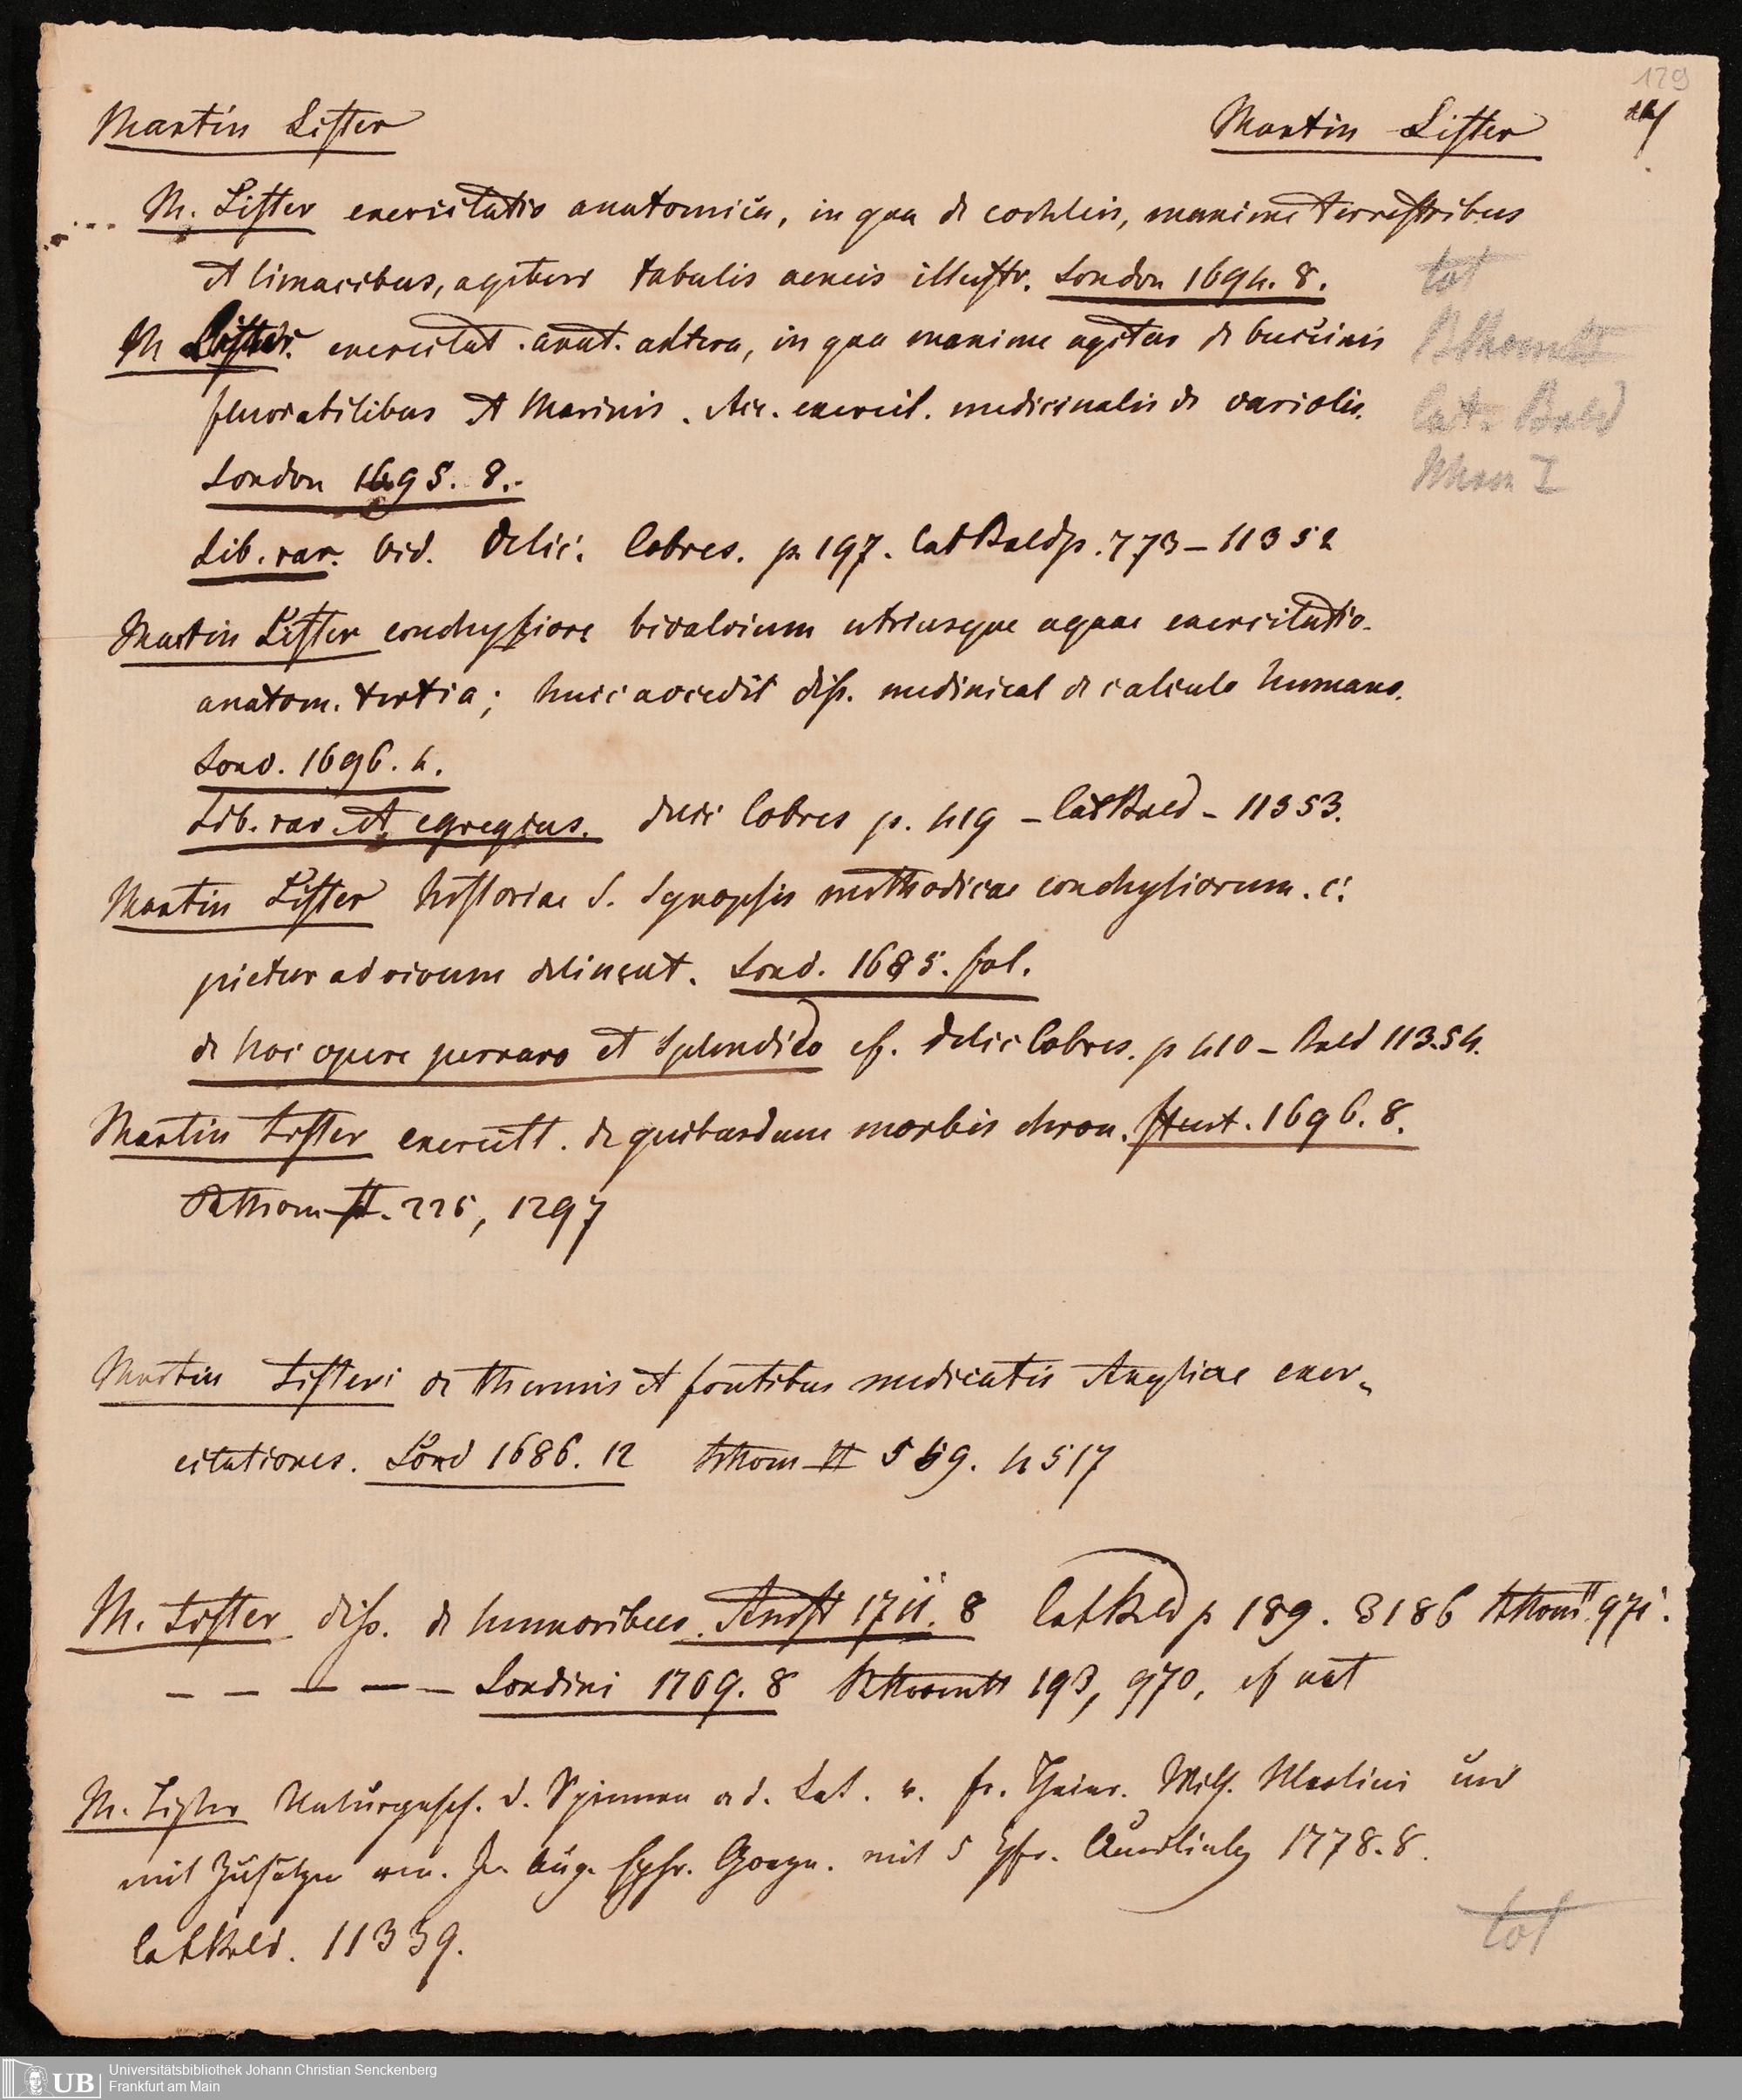 129
Martin Lister Martin Lister
M. Lister exercitatio anatomica, in qua de cochleis, maxime terrestribus
et limacibus, agitur tabulis aeneis illustr. London 1694. 8. tot
M Lister. exercitat. anat. altera, in qua maxime agitur de buccinis RthomII
fluviatilibus et Marinis. Acc. exercit. medicinalis de variolis. Cat. Bald
London 1695. 8. Rthom I
Lib. rar. vid. Delic. Cobres. p 197. Cat Bald p. 773 – 11352
Martin Lister conchyliorr bivalvium utriusque aquae exercitatio
anatom. tertia; huic accedit diss. medinical de calculo humano.
Lond. 1696. 4.
Lib. rar. et egregius. Delic Cobres p. 419 – Cat Bald – 11353.
Martin Lister historiae s. Synopsis methodicae conchyliorum. c.
pictur ad vivum delineat. Lond. 1685. fol.
de hoc opere perraro et splendido cf. Delic Cobres. p 410 – Bald 11354.
Martin Lister exercitt. de quibusdam morbis chron. 1696. 8.
Rthom II. 225, 1297
Martin Listeri de thermis et fontibus medicatis Angliae exer-
citationes. Lond 1686. 12 Rthom II 559. 4517
M. Lister diss. de humoribus. Amst 1711. 8 Cat Bald p 189. 3186 Rthom II 971.
– – – – – Londini 1709. 8 Rthom II 193, 970, cf nat
M. Lister Naturgesch. d. Spinnen a d. Lat. v. Fr. Heinr. Wilh. Martini und
mit Zusätzen von. Jo. Aug. Ephr. Goeze. mit 5 Kpfr. Quedlinbg 1778. 8.
Cat Bald. 11339.
tot
Universitätsbibliothek Johann Christian Senckenberg
UB Frankfurt am Main